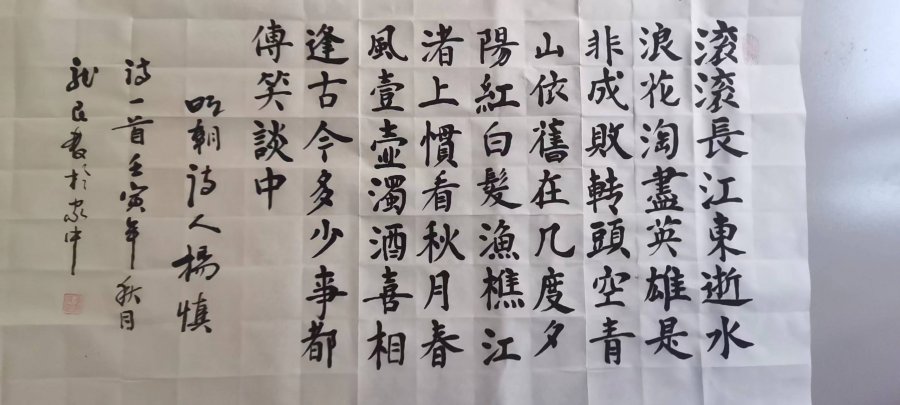 滚滚長江東逝水
浪花淘盡英雄是
非成敗转頭空青
山依舊在几度夕
陽紅白髮漁樵江
渚上慣看秋月春
風壹壺濁酒喜相
逢古今多少事都
傳笑談中
明朝詩人楊慎
詩一首壬寅年秋月
龍良書於家中